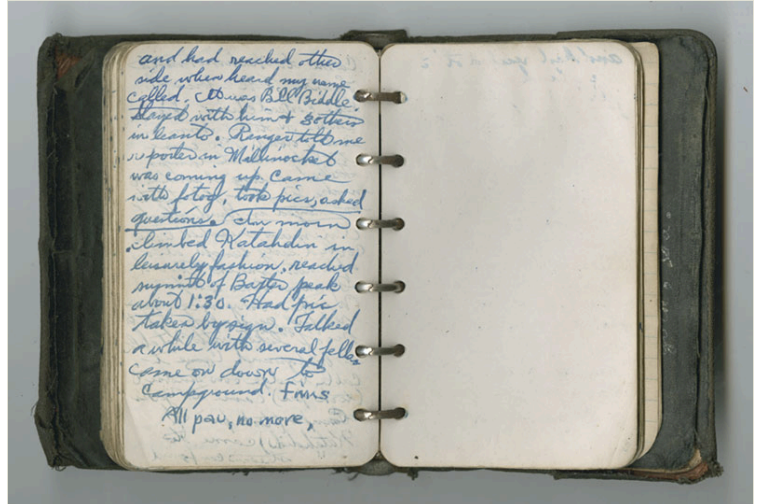 and had reached other
side when heard my name
called. It was Bill Biddle.
Stayed with him & 3 others
in leanto. Ranger told me
reporter in Millinocket
was coming up. Came
with fotog, took pics, asked
questions. In morn
climbed Katahdin in
leisurely fashion, reached
summit of Baxter peak
about 1:30. Had pic
taken by sign. Talked
a while with several fellas
came on down to
Campground. Finis
All pau, no more,